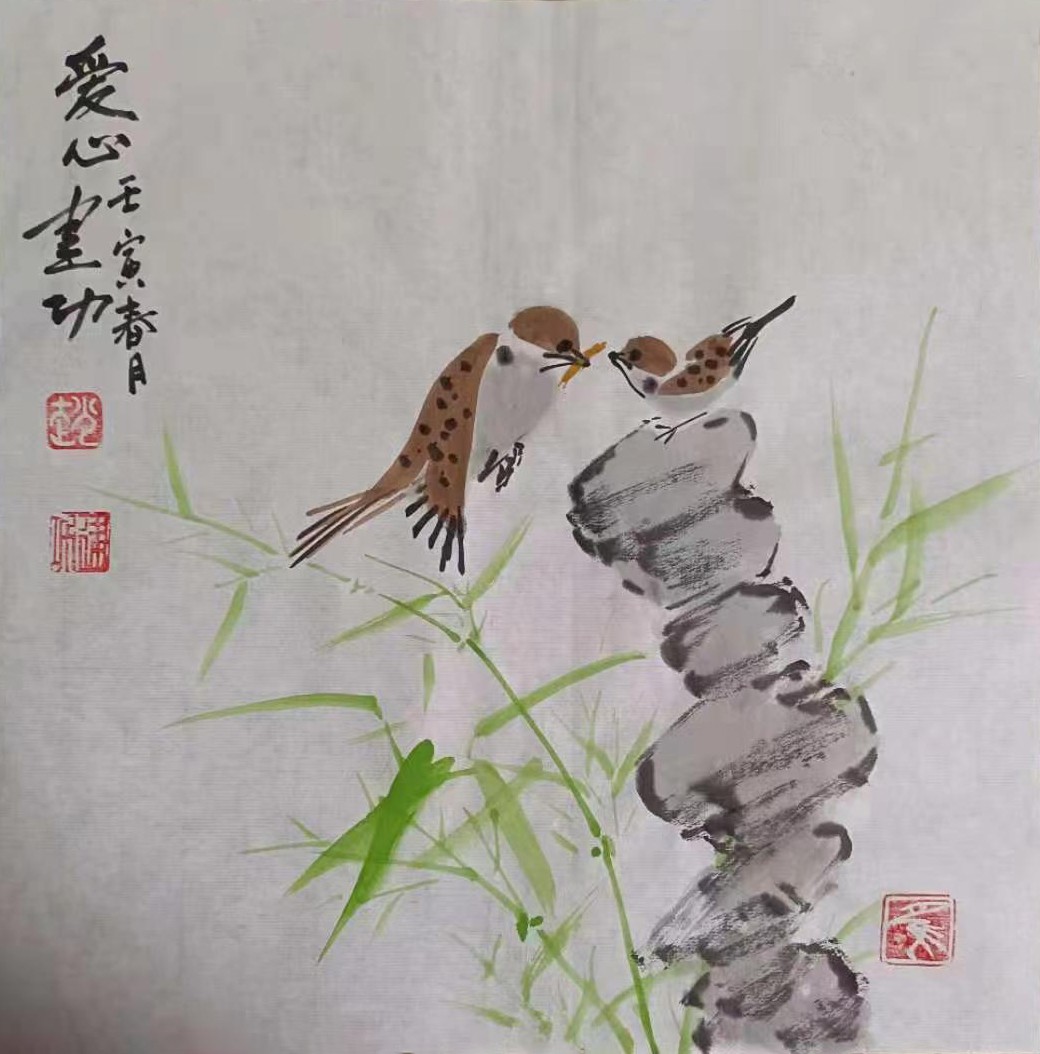 爱心
壬寅春月
建功